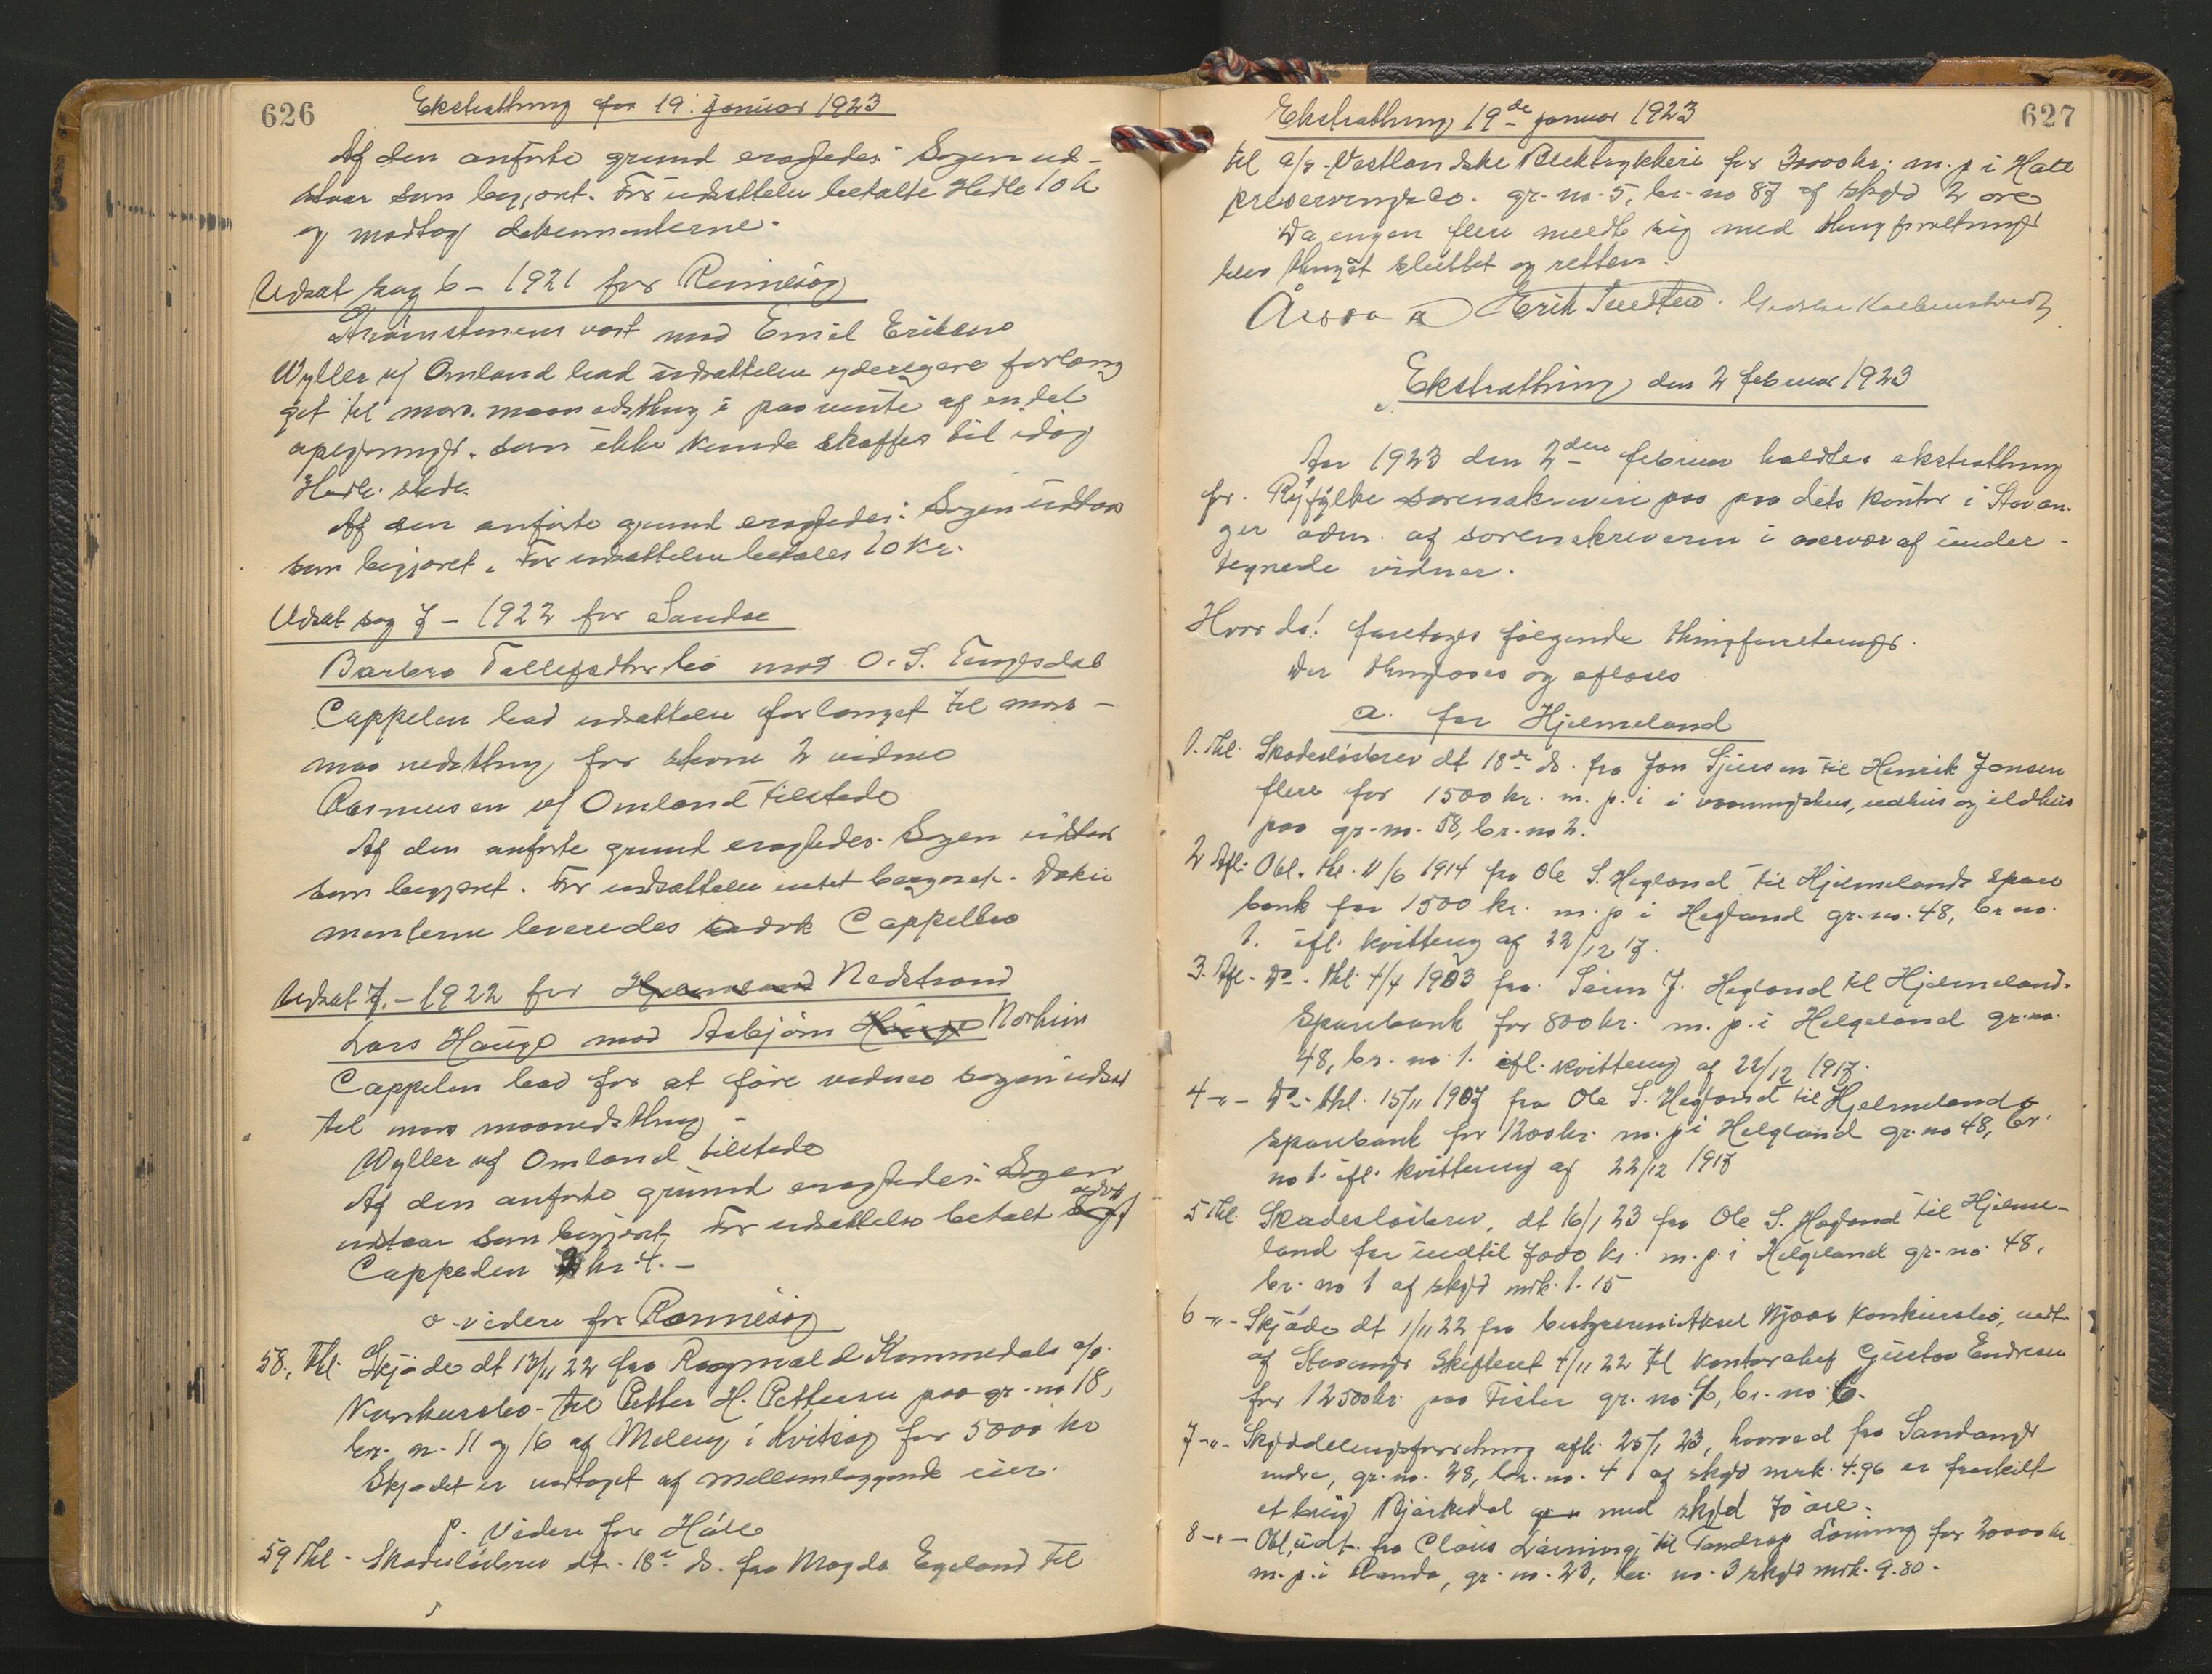 626
Ekstrathing for 19. januar 1923
Af den anførte grund eragtedes: Sagen ud-
staar som begjært. For udsættelse betalte Hedle 10 k
og modtog dokumenterne.
Udsat sag 6 - 1921 for Rennesøy
Strømstensen vart mod Emil Eriksen
Wyller v/ Omland bad udsættelse ydeligere forlæng
get til mars. maanedsthing i paavente af en del
oplysninger, som ikke kunde skaffes til idag
Hedle. stede.
Af den anførte grund eragtedes: Sagen udstaar
som begjæret. For udsættelse betales 10 kr.
Udsat sag 7 - 1922 for Sandse
Barbro Tollefsdtr bo mod O. S. Tengesdal
Cappelen bad udsættelse forlænget til mars-
maanedsthing for stevne 2 vidner
Rasmussen v/ Omland tilstede
Af den anførte grund eragtedes. Sagen udstaar
som begjæret. For udsættelse intet beregnet. Doku
menterne leveredes Cappelen
Udsat 7. - 1922 for Hjelmeland Nedstrand
Lars Hauge mod Asbjørn Hauge Norheim
Cappelen bad for at føre vidner sagen udsat
til mars maanedsthing -
Wyller v/ Omland tilstede
Af den anførte grund eragtedes: Sagen
udstaar som begjæret. For udsættelse betalt advk
Cappelen kr. 4. -
o. videre for Rennesøy
58. Thl. Skjøde dt 13/11 22 fra Ragnvald Kommedals a/s.
Konkursbo - til Petter H. Pettersen paa gr. no 18,
br. n. 11 og 16 af Meling i Kvitsøy for 5000 kr
Skjødet er vedtaget af mellemliggende eier.
p. Videre for Håle
59 Thl - Skadesløsbrev dt. 18de ds. fra Magda Egeland til
627
Ekstrathing 19de januar 1923
til a/s. Vestlandske Bliktrykkeri for 30000 kr. m. p i Hatle
preservings Co. gr. no. 5, br. no 87 af skyld 2 øre
Da ingen flere meldte sig med thingforretninger
blev thinget sluttet og retten.
Erik
Ekstrathing den 2 februar 1923
Aar 1923 den 2den februar holdtes ekstrathing
for. Ryfylke sorenskriveri paa paa dets kontor i Stavan-
ger adm. af sorenskriveren i nærvær af under-
tegnede vidner.
Hvor da! foretages følgende thingforretninger.
Der thinglæses og aflæses
a. for Hjelmeland
1. Thl. Skadesløsbrev dt 18de ds. fra Jon Sjursen til Henrik Jonsen
flere for 1500 kr. m. p. i i vaaningshus, udhus og ildhus
paa gr. no. 58, br. no 2.
2 Afl. Obl. thl. 11/6 1914 fra Ole S. Hegland til Hjelmelands spare
bank for 1500 kr. m. p i Hegland gr. no. 48, br no.
1. ifl. kvittering af 22/12 17.
3. Afl. Do. thl. 4/4 1903 fra. Søren J. Hegland til Hjelmeland.
Sparebank for 800 kr. m. p. i Helgeland gr. no.
48, br. no 1. ifl. kvittering af 22/12 1917.
4 -"- Do. thl. 15/11 1907 fra Ole S. Hegland til Hjelmelands
Sparebank for 1200 kr. m. p i Helgland gr. no 48, br.
no 1. ifl. kvittering af 22/12 1917
5 Thl. Skadesløsbrev, dt 16/1 23 fra Ole S. Hegland til Hjelme-
land for indtil 7000 kr. m. p. i Helgeland gr. no. 48,
br. no 1 af skyld mrk. 1. 15
6 -"- Skjøde dt 1/11 22 fra bestyreren i Aksel Njaas Konkursbo, udst.
af Stavanger Skifteret 4/11 22 til kontorchef Gustav Endresen
for 12500 kr. paa Fister gr. no. 4, br. no. 6.
7 -"- Skylddelingsforretning afh. 25/1 23, hvorved fra Sandanger
indre, gr. no. 28, br. no. 4 af skyld mrk. 4.96 er fraskilt
et brug Bjørkedal med skyld 70 øre.
8 -"- Obl, udst. fra Claus Launing, til Tandrup Launing for 20000 kr
m. p. i Randa, gr. no. 23, br. no. 3 skyld mrk. 9.80.